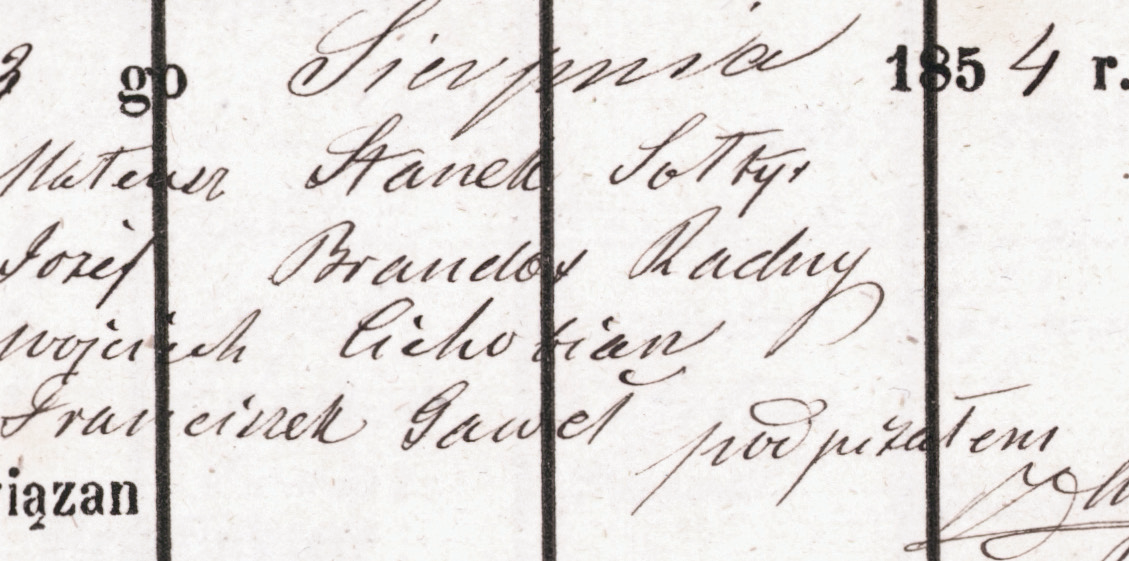 3 go Sierpnia 1854 r.
Mateusz Stanek Sołtys
Jozef Brandys Radny
Wojciech Cichobian
Franciszek Gaweł podpisałem
iązan